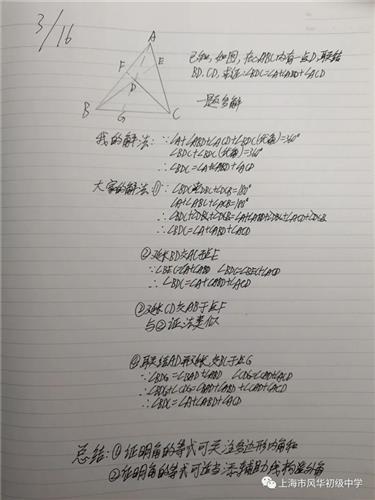 3/16
A
F
E
D
B
G
C
已知,如图,在△ABC内有一点D,联结
BD,CD,求证:∠BDC=∠A+∠ABD+∠ACD
一题多解
我的解法:∵∠A+∠ABD+∠ACD+∠BDC(优角)=360°
∠BDC+∠BDC(优角)=360°
∴∠BDC=∠A+∠ABD+∠ACD
大家的解法①:∵∠BDC+∠DBC+∠DCB=180°
∠A+∠ABC+∠ACB=180°
∴∠BDC+∠DBC+∠DCB=∠A+∠ABD+∠DBC+∠ACD+∠DCB
∴∠BDC=∠A+∠ABD+∠ACD
②延长BD交AC于点E
∵∠BEC=∠A+∠ABD ∠BDC=∠BEC+∠ACD
∴∠BDC=∠A+∠ABD+∠ACD
③延长CD交AB于点F
与②证法类似
④联结AD并延长,交BC于点G
∵∠BDG=∠BAD+∠ABD ∠CDG=∠CAD+∠ACD
∴∠BDG+∠CDG=∠BAD+∠ABD+∠CAD+∠ACD
∴∠BDC=∠A+∠ABD+∠ACD
总结:①证明角的等式可关注多边形内角和
②证明角的等式可适当添辅助线,构造外角
上海市风华初级中学